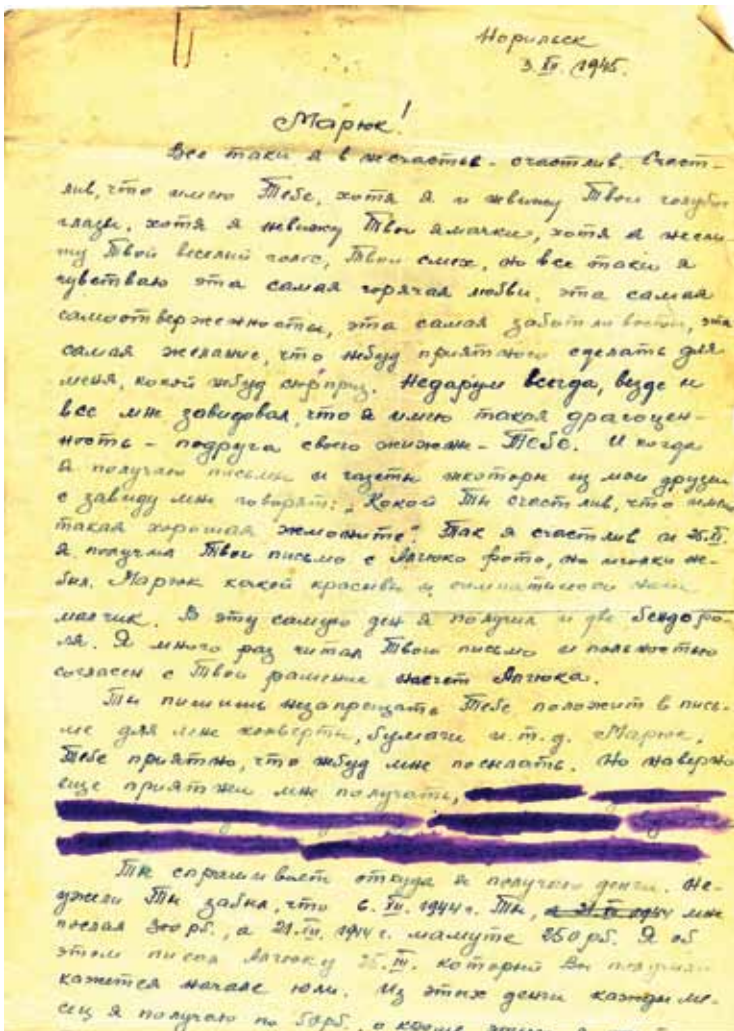 Норильск
3. XII. 1945.
Марюк!
Все таки я в несчастье - счастлив. Счаст-
лив, что имею Тебе, хотя я и невижу Твои голубы
глазы, хотя я невижу Твои ямачки, хотя я неслы-
шу Твой веселый голос, Твои смех, но все таки я
чувстваю эта самая горячая любви, эта самая
самоотверженносты, эта самая заботливосты, эта
самая желание, что нибуд приятного сделать для
меня, какой нибуд сюрприз. Недарум всегда, везде и
все мне завидовал, что я имею такая драгоцен-
ность - подруга своего жизни - Тебе. И когда
я получаю письмы и газеты некоторы из мои друзьи
с завиду мне говорят: „Какой Ты счастлив, что имеш
такая хорошая
Так я счастлив и
я получил Твои письмо с Апчюко фото, но
был. Марюк какой красивы и симпатически наш
малчик. В эту самую ден я получил и две бендеро-
ля. Я много раз читал Твою письмо и польностью
согласен с Твои рашение насчет Апчюка.
Ты пишишь незапрещать Тебе положит в пись-
ме для мне конверты, бумаги и. т. д. Марюк,
Тебе приятно, что нибуд мне посылать. Но наверно
еще приятни мне получать,
Ты спрашиваеш откуда я получаю денги. Не-
ужели Ты забыл, что 6. XII. 1944 г. Ты, мне
послал 300 рб., а 21. XII. 1944 г. мамуте 250 рб. Я об
этом писал Апчюку который Вы получили
кажется начале юли. Из этих денги кажды ме-
сец я получаю по 50 рб., а кроме этого я